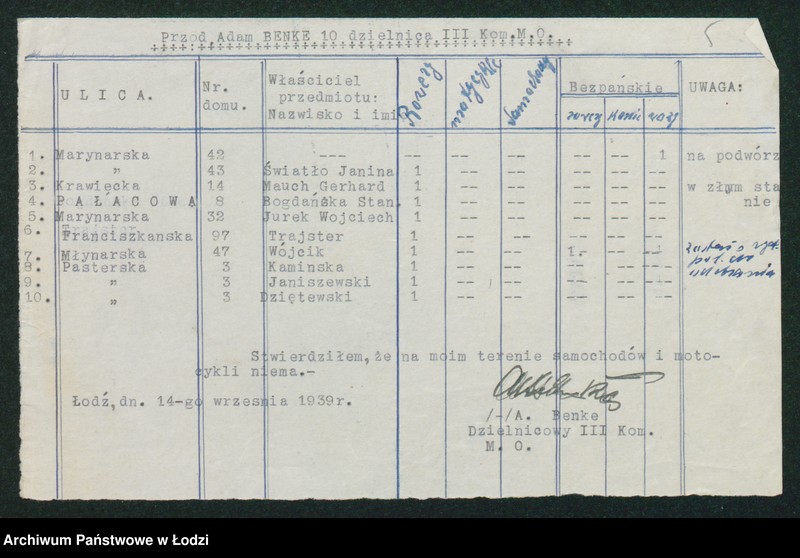 Przod Adam BENKE 10 dzielnica III Kom.M.O. 5
ULICA. Nr. domu. Właściciel przedmiotu: Nazwisko i imię Rowery motocykle Samochody Bezpańskie rowery konie wozy UWAGA:
1. Marynarska 42 --- -- -- -- -- -- 1 na podwórz
2. " 43 Światło Janina 1 -- -- -- -- --
3. Krawiecka 14 Mauch Gerhard 1 -- -- -- -- -- w złym sta
4. PAŁACOWA 8 Bogdańska Stan. 1 -- -- -- -- -- nie
5. Marynarska 32 Jurek Wojciech 1 -- -- -- -- --
6. Trajster
Franciszkanska 97 Trajster 1 -- -- -- -- --
7. Młynarska 47 Wójcik 1 -- -- 1.- -- --
8. Pasterska 3 Kaminska 1 -- -- -- -- --
9. " 3 Janiszewski 1 -- -- -- -- --
10. " 3 Dziętewski 1 -- -- -- -- --
Stwierdziłem, że na moim terenie samochodów i moto-
cykli niema.-
Łódź, dn. 14-go wrzesnia 1939r.
/-/A. Benke
Dzielnicowy III Kom.
M. O.
Archiwum Państwowe w Łodzi